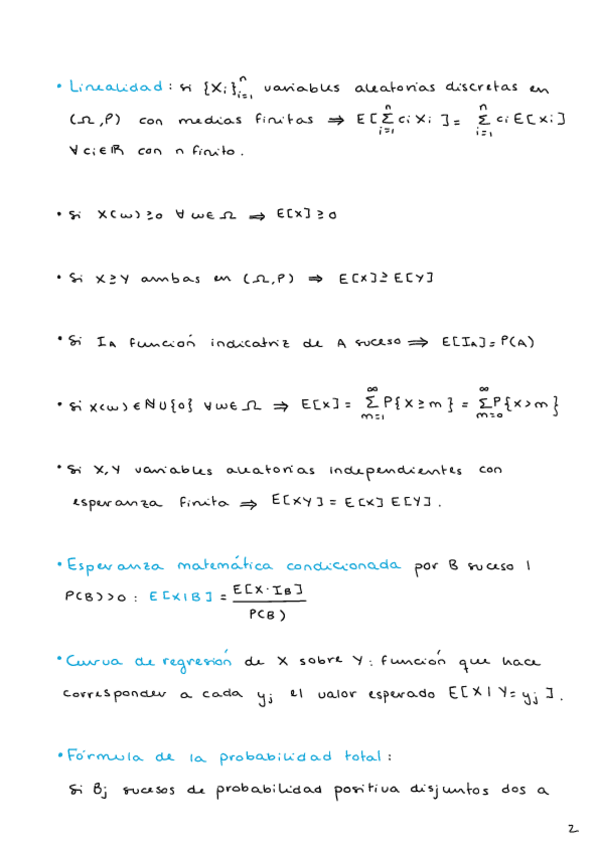 • Linealidad: si {Xi}ⁿᵢ₌₁ variables aleatorias discretas en
(Ω,P) con medias finitas ⇒ E[ⁿΣᵢ₌₁ ciXi] = ⁿΣᵢ₌₁ ciE[Xi]
∀ci∈ℝ con n finito.
• Si X(ω)≥0 ∀ω∈Ω ⇒ E[X]≥0
• Si X≥Y ambas en (Ω,P) ⇒ E[X]≥E[Y]
• Si I_A función indicatriz de A suceso ⇒ E[I_A]=P(A)
• Si X(ω)∈ℕ∪{0} ∀ω∈Ω ⇒ E[X]= ∞Σm=1 P{X≥m} = ∞Σm=0 P{X>m}
• Si X,Y variables aleatorias independientes con
esperanza finita ⇒ E[XY]=E[X]E[Y].
• Esperanza matemática condicionada por B suceso |
P(B)>0: E[X|B] = E[X·I_B] / P(B)
• Curva de regresión de X sobre Y: función que hace
corresponder a cada yj el valor esperado E[X|Y=yj].
• Fórmula de la probabilidad total:
Si Bj sucesos de probabilidad positiva disjuntos dos a
2